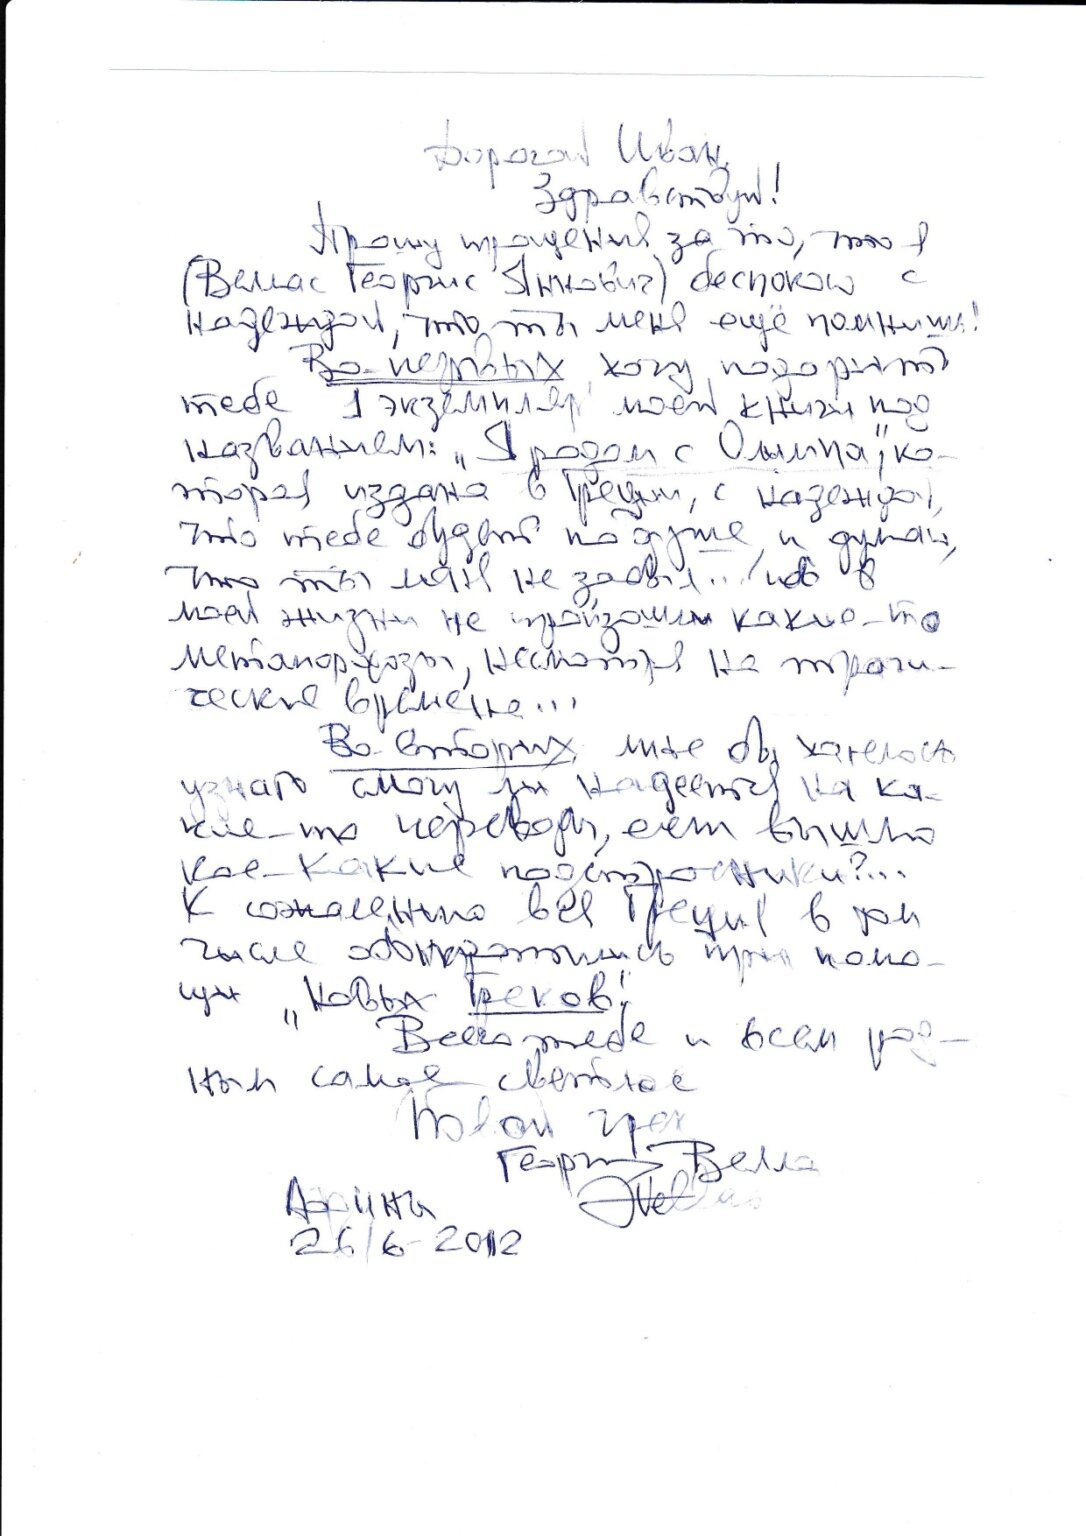 Дорогой Иван,
Здравствуй!
Прошу прощения за то, что я
(Веллас Георгис Яннович) беспокою с
надеждой, что ты меня ещё помнишь!
Во-первых, хочу подарить
тебе 1 экземпляр моей книги под
названием: „Я родом с Олимпа", ко-
торая издана в Греции, с надеждой,
что тебе будет по душе, и думаю,
что ты меня не забыл... ибо в
моей жизни не произошли какие-то
метаморфозы, несмотря на траги-
ческие времена...
Во-вторых, мне бы хотелось
узнать смогу ли надеется на ка-
кие-то переводы, если вышлю
кое-какие подстрочники?...
К сожалению вся Греция в том
числе обанкротились при помо-
щи „Новых Греков".
Всего тебе и всем род-
ным самое светлое
Твой грек
Георгис Веллас
Афины
26/6-2012